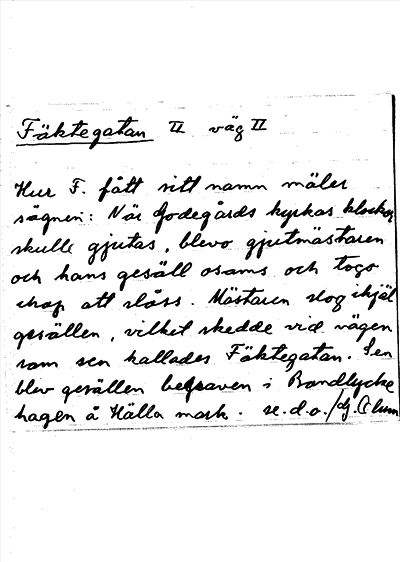 Fäktegatan II väg II
Hur F. fått sitt namn mäler
sägnen: När Godegårds kyrkas klockor
skulle gjutas, blevo gjutmästaren
och hans gesäll osams och togo
ihop att slåss. Mästaren slog ihjäl
gesällen, vilket skedde vid vägen
som sen kallades Fäktegatan. Sen
blev gesällen begraven i Bandlycke
hagen å Hälla mark. se. d. o./